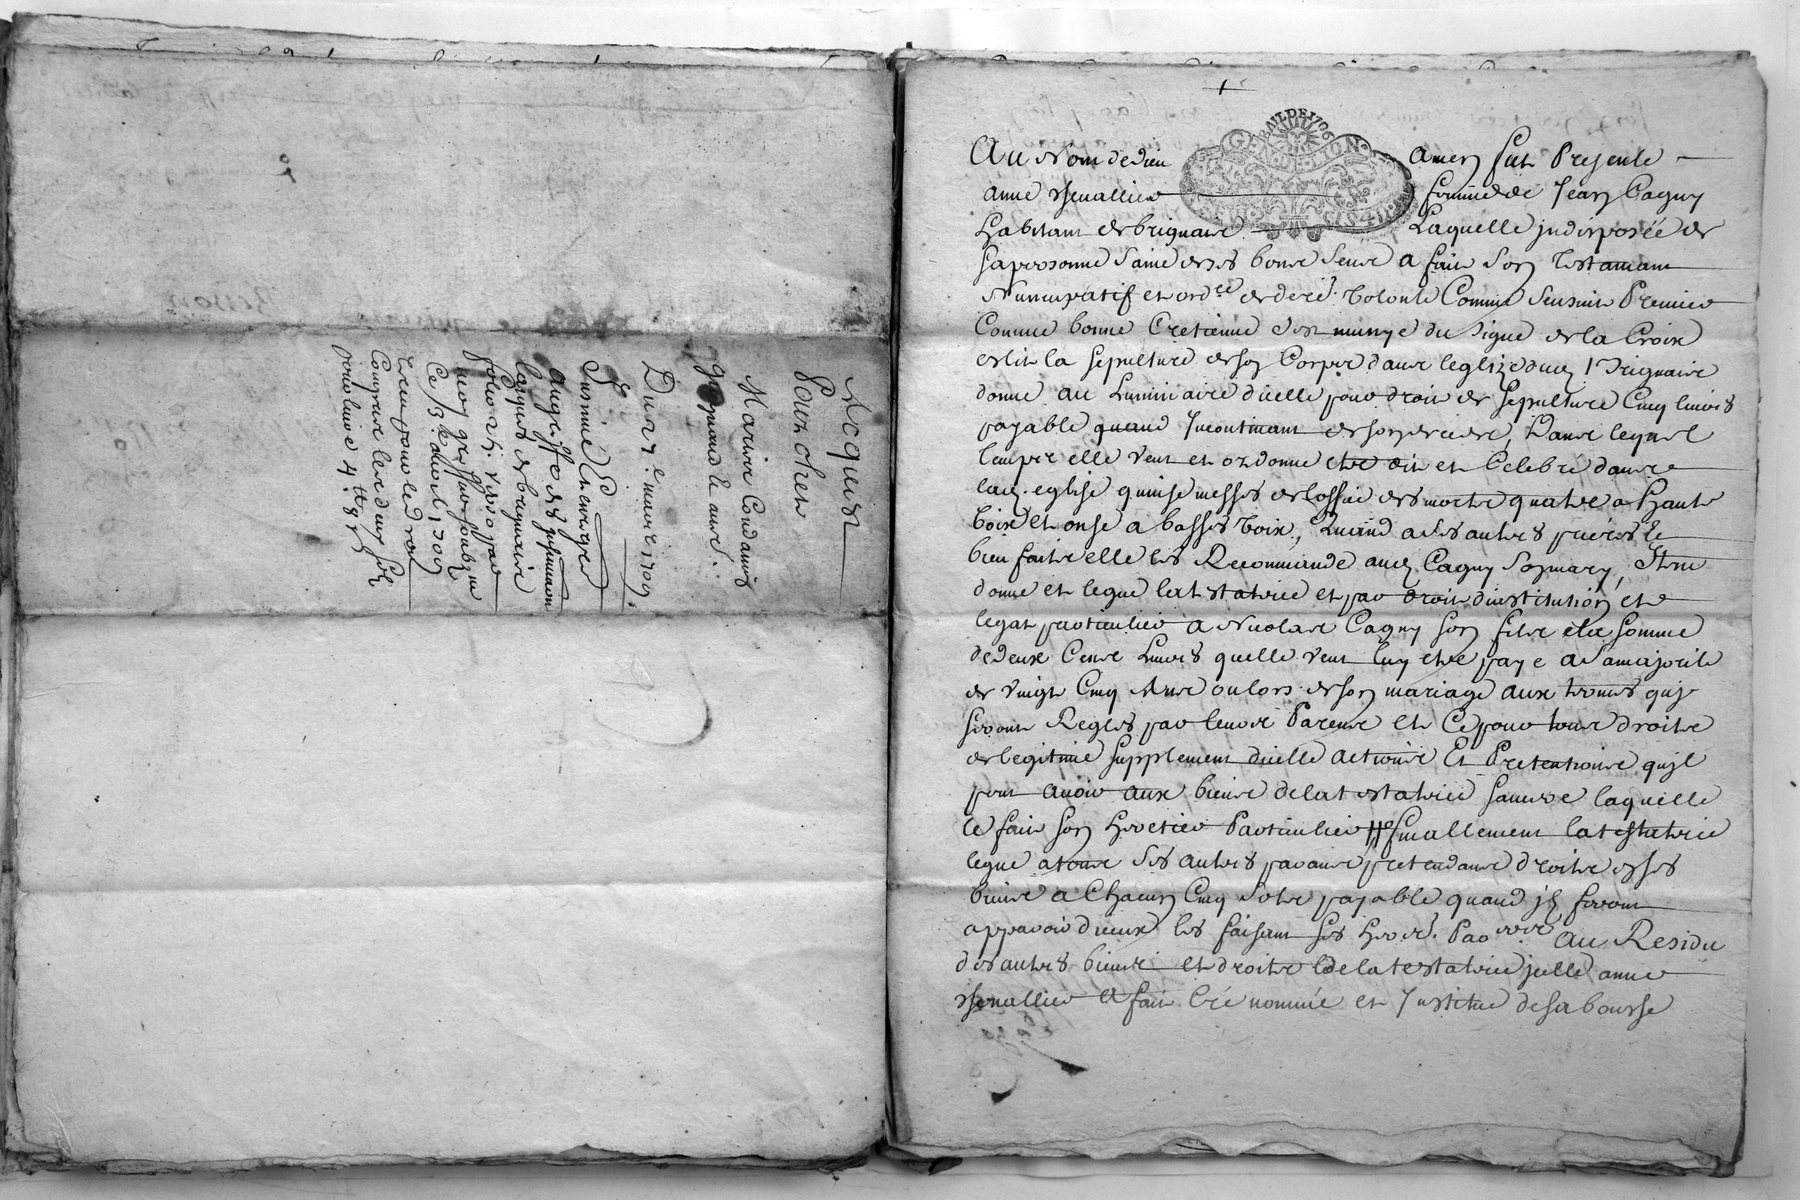 Acquist
Pour
Marivie
Du 27.e mars 1709.
Insinué
Au greffe des insinuations
laïques de brignais
folio 25 verso par
moy greffier soubz.ne
Ce 13.e avril 1709
receu pour le droit
Compris les deux sols
pour livre 4.tt 8 s
BAIL DE 1706
GEN DE LION
Au Nom de dieu Amen fut Presente
anne chevallier femme de Jean Cagny
habitant de brignais Laquelle indisposée de
sa personne saine de ses bons sens a fait son testamant
Nuncupatif et ord.ce de dere.e volonte Comme sensuit Premier
Comme bonne Cretienne sest munye du signe de la Croix
eslit la sepulture de son Corps dans leglize dud Brignais
donne au Luminaire dicelle pour droit de sepulture Cinq livres
payable quand Incontinant de son deceds, Dans lequel
temps elle veut et ordonne etre dit et Celebre dans
lad. eglise quinse messes de loffice des morts quatre a Haute
voix et onse a basses voix, Quand a ses autres prieres et
bien faits elle les Recommande aud Cagny son mary, Item
donne et legue la testatrice et par droit dinstitution et
legat particulier a Nicolas Cagny son fils la somme
de deux Cens Livres quelle veut luy etre paye a sa majorite
de vingt Cinq Ans ou lors de son mariage aux termes quj
seront Regles par leurs Parens et Ce pour tous droits
de legitime supplement dicelle actions Et Pretentions quil
peut avoir aux biens de la testatrice sa mere laquelle
le fait son heretier Particulier finallement la testatrice
legue a tous ses autres parans pretendans droits en ses
biens a Chacun Cinq sols payable quand ils feront
apparoir diceux les faisant ses her.rs Par.rs Au Residu
des autres biens et droits de la testatrice icelle anne
chevallier a fait Cré nommé et Institue de sa bousse